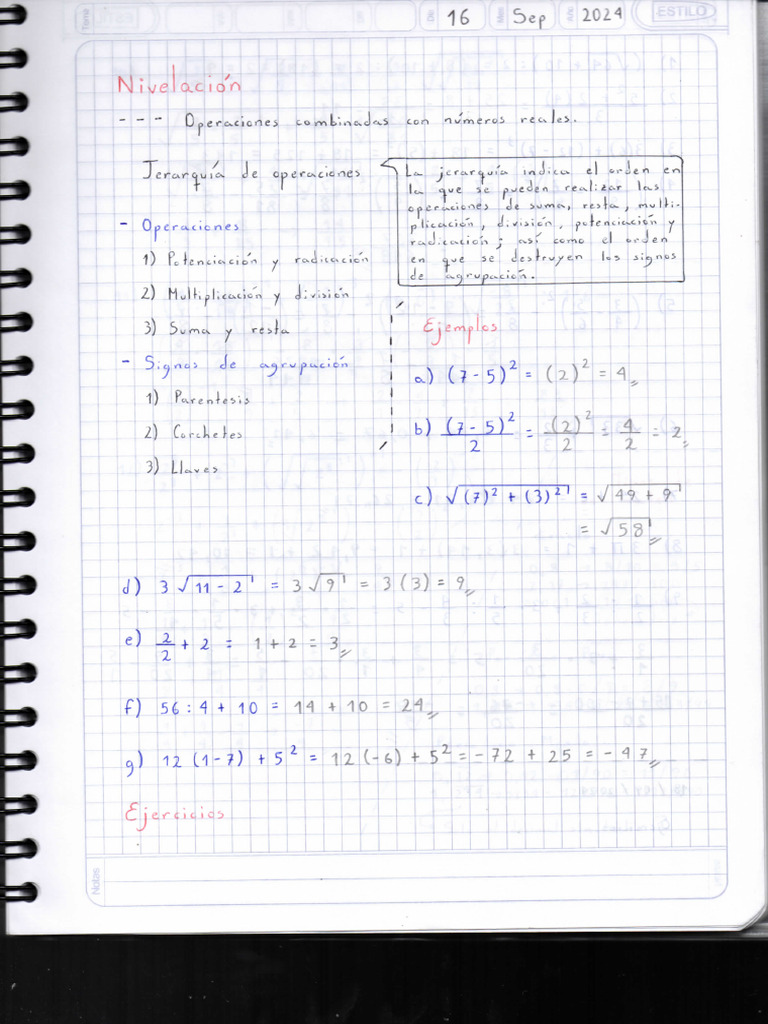 Tema
Día 16 Mes Sep Año 2024 ESTILO
Nivelación
- - - Operaciones combinadas con números reales.
Jerarquía de operaciones
La jerarquía indica el orden en
la que se pueden realizar las
operaciones de suma, resta, multi-
plicación, división, potenciación y
radicación; así como el orden
en que se destruyen los signos
de agrupación.
- Operaciones
1) Potenciación y radicación
2) Multiplicación y división
3) Suma y resta
- Signos de agrupación
1) Parentesis
2) Corchetes
3) Llaves
Ejemplos
a) (7-5)² = (2)² = 4
b) (7-5)²/2 = (2)²/2 = 4/2 = 2
c) √((7)² + (3)²) = √(49 + 9)
= √58
d) 3 √(11 - 2) = 3 √9 = 3 (3) = 9
e) 2/2 + 2 = 1 + 2 = 3
f) 56 : 4 + 10 = 14 + 10 = 24
g) 12 (1-7) + 5² = 12 (-6) + 5² = -72 + 25 = -47
Ejercicios
Notas